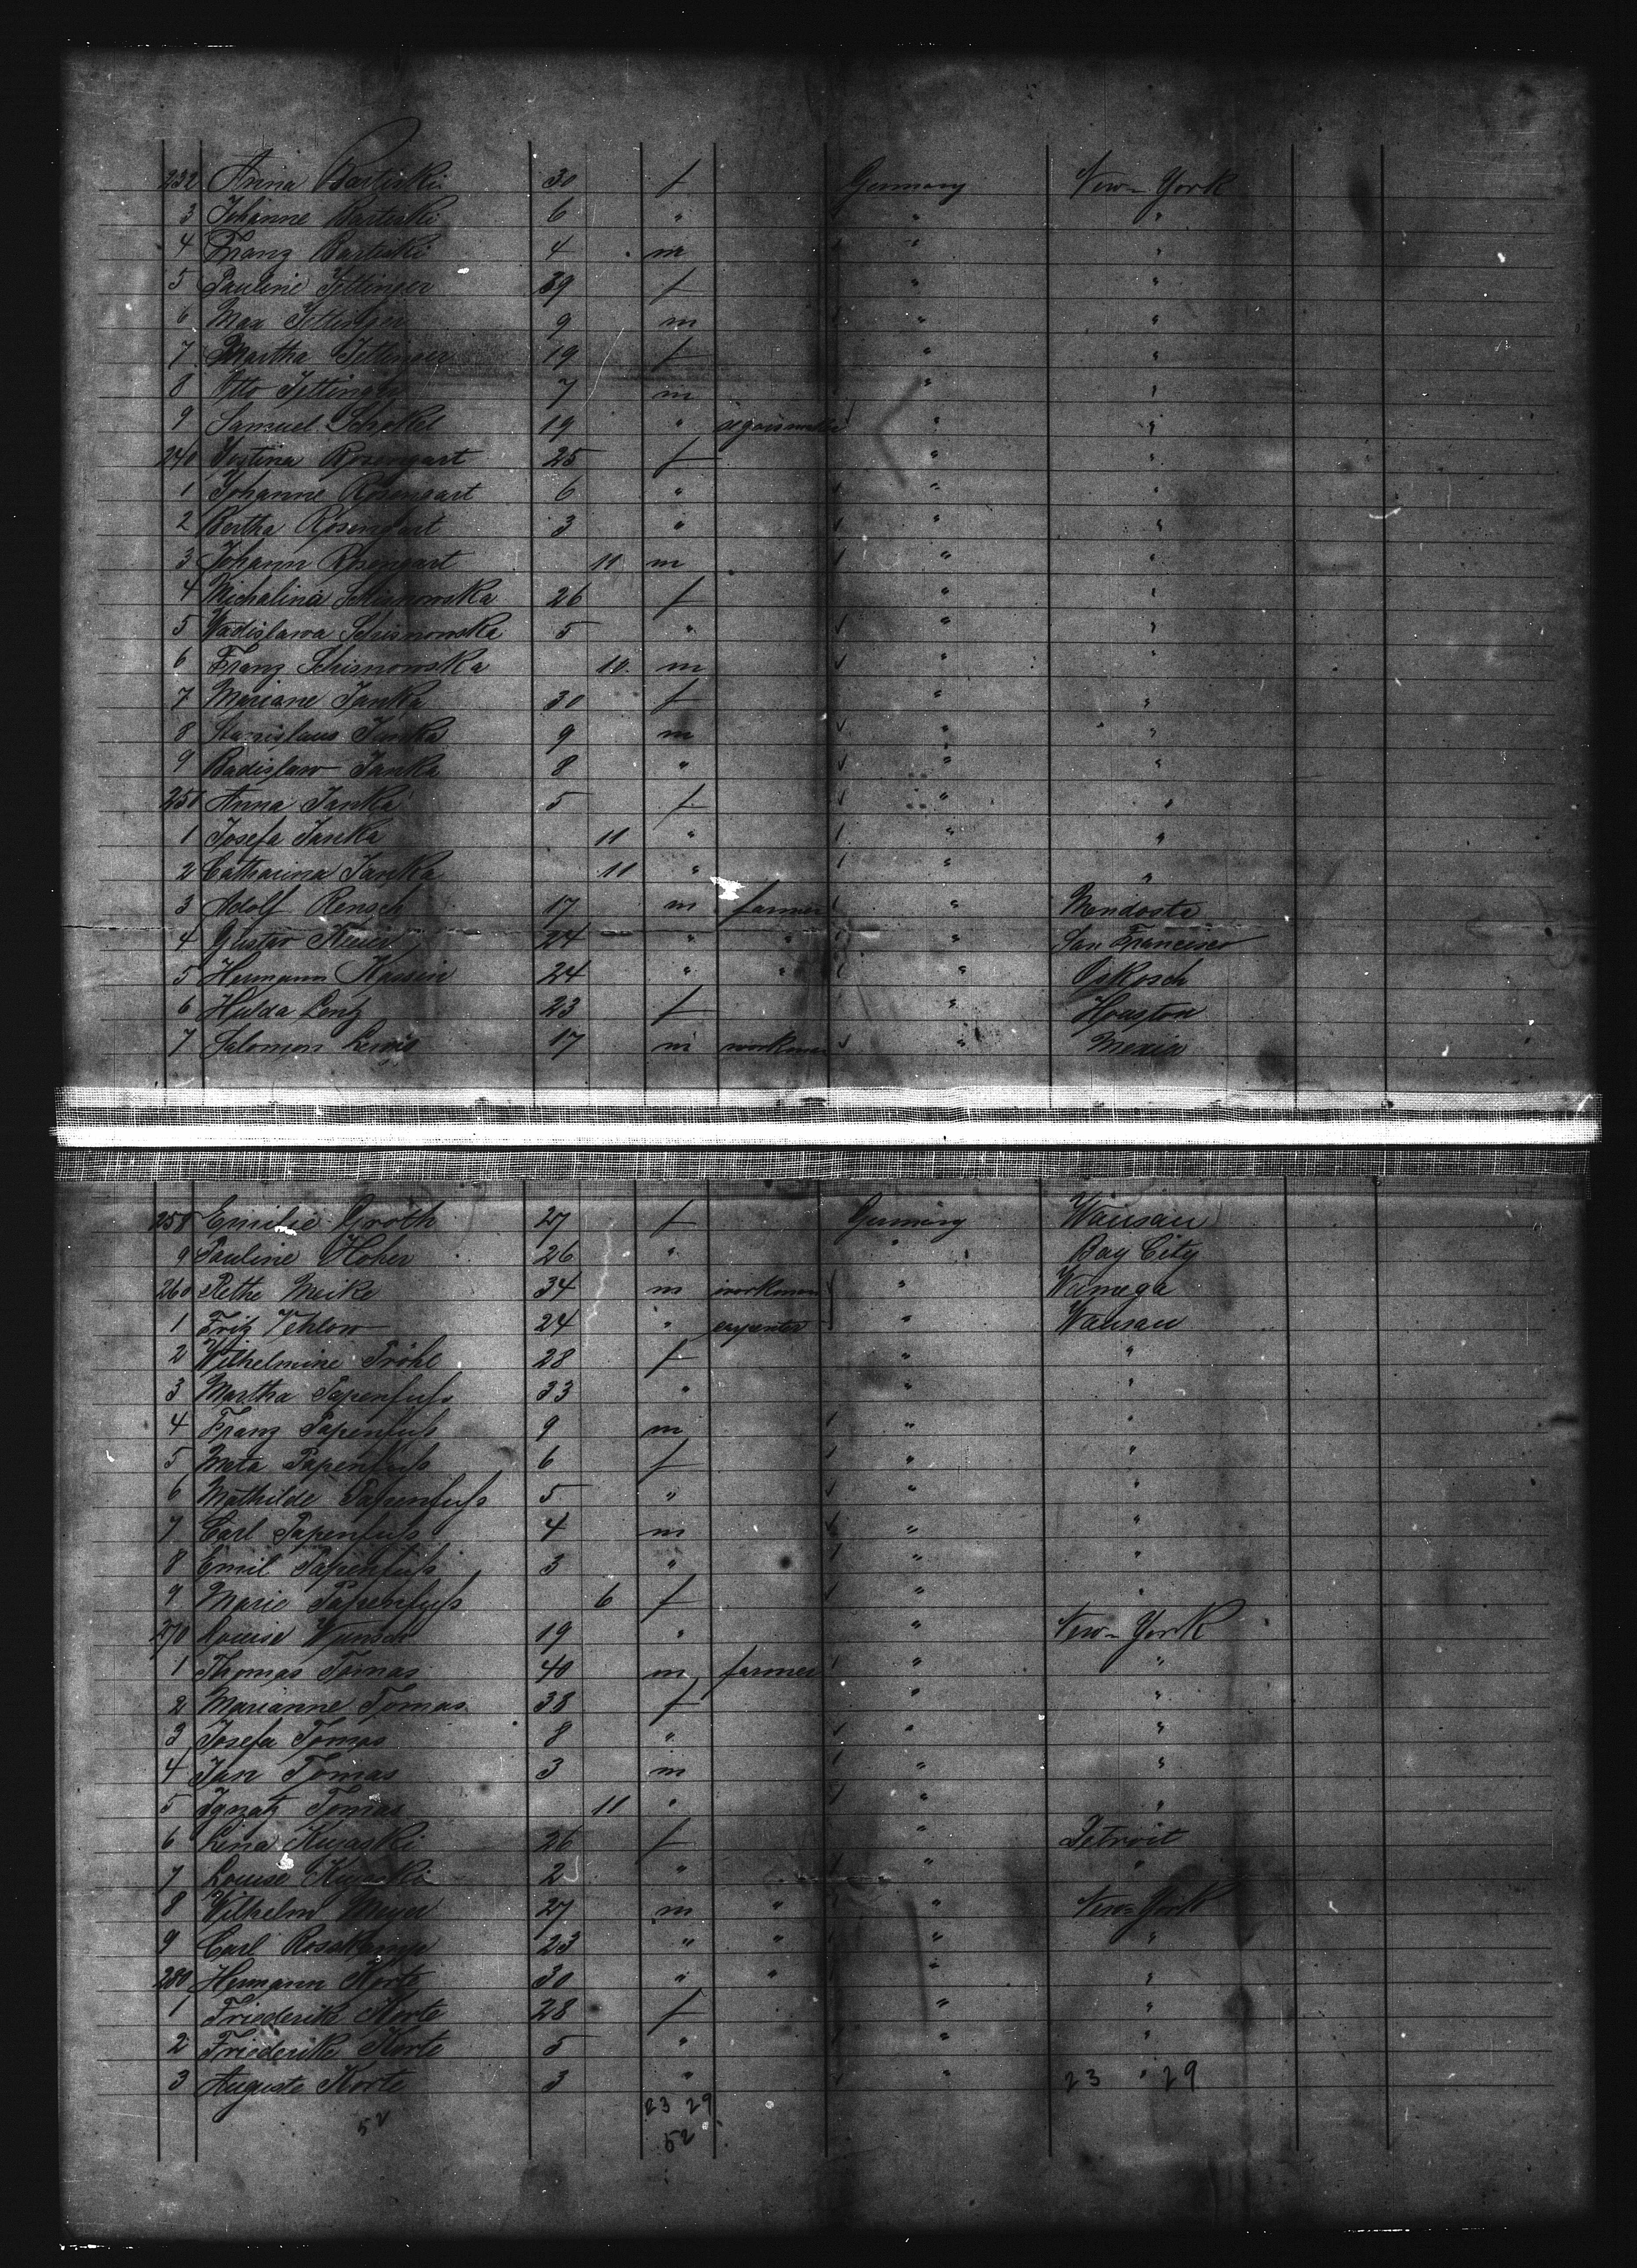 232 Anna Bartiski 30 f Germany New-York
3 Johanne Bartiski 6 " " "
4 Franz Bartiski 4 m " "
5 Pauline Jettinger 39 f " "
6 Max Jettinger 9 m " "
7 Martha Jettinger 19 f " "
8 Otto Jettinger 7 m " "
9 Samuel 19 " " "
240 Justina Rosengart 25 f " "
1 Johanne Rosengart 6 " " "
2 Bertha Rosengart 3 " " "
3 Johann Rosengart 11 m " "
4 Michalina Schisnowska 26 f " "
5 Wadislawa Schisnowska 5 " " "
6 Franz Schisnowska 10 m " "
7 Mariane Janka 30 f " "
8 Stanislaus Janka 9 m " "
9 Badislaw Janka 8 " " "
250 Anna Janka 5 f " "
1 Josefa Janka 11 " " "
2 Catharina Janka 11 " " "
3 Adolf Rensch 17 m farmer " Mendosta
4 Gustav 24 " " " San Francisco
5 Hermann Kassin 24 " " " Oskosch
6 Hulda Lentz 23 f " Houston
7 Salomon Lewis 17 m workman " Mexia
258 Emilie Groth 27 f Germany Wausau
9 Pauline Hoher 26 " " Bay City
260 Meike 34 m workman " Wamega
1 Fritz Vehlow 24 " carpenter " Wausau
2 Wilhelmine Pröhl 28 f " "
3 Martha Papenfuss 33 " " "
4 Franz Papenfuss 9 m " "
5 Meta Papenfuss 6 f " "
6 Mathilde Papenfuss 5 " " "
7 Carl Papenfuss 4 m " "
8 Emil Papenfuss 3 " " "
9 Marie Papenfuss 6 f " "
270 Louise Wunsch 19 " " New-York
1 Thomas Tomas 40 m farmer " "
2 Marianne Tomas 38 f " "
3 Josefa Tomas 8 " " "
4 Jan Tomas 3 m " "
5 Ignatz Tomas 11 " " "
6 Lina Kujaski 26 f " Detroit
7 Louise Kujaski 2 " " "
8 Wilhelm Meyer 27 m " " New-York
9 Carl Rosskamp 23 " " " "
280 Hermann Korte 30 " " " "
1 Friederike Korte 28 f " "
2 Friederike Korte 5 " " "
3 Auguste Korte 3 " " 23 " 29
23 29
52 52